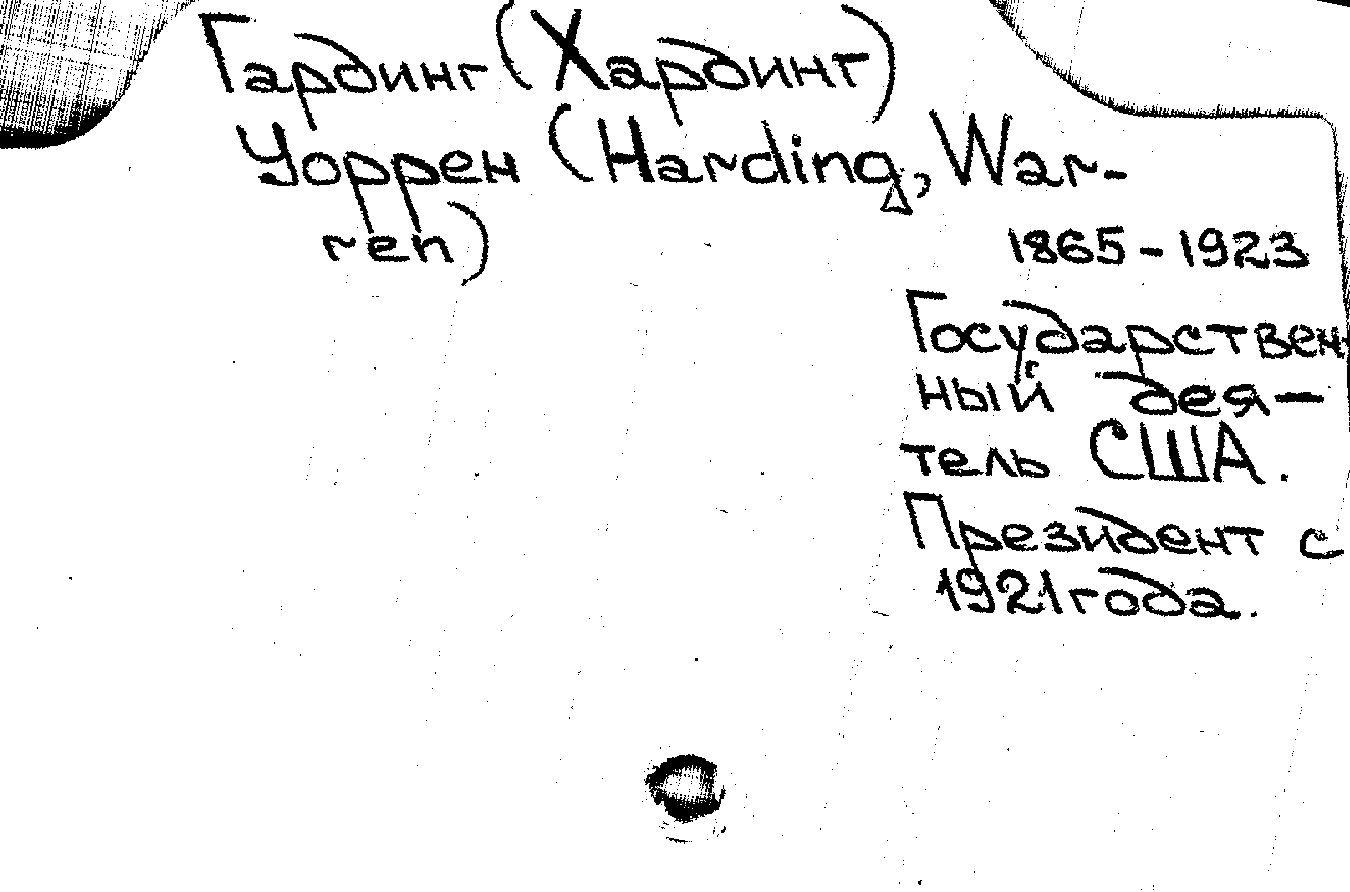 Гардинг (Хардинг)
Уоррен (Harding, War-
ren)
1865-1923
Государствен-
ный дея-
тель США.
Президент с
1921 года.